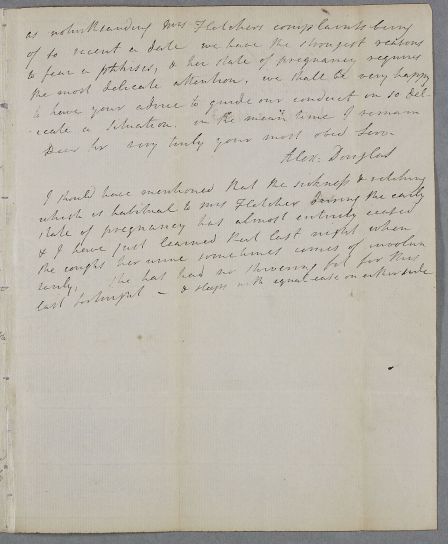 as notwithstanding Mrs Fletchers complaints being
of so recent a date we have the strongest reasons
to fear a phthisis, & her state of pregnancy requires
the most delicate attention, we shall be very happy
to have your advice to guide our conduct in so del-
-icate a situation. in the mean time I remain
Dear Sir very truly your most obed Serv.
Alex: Douglas
I should have mentioned that the sickness & retching
which is habitual to Mrs Fletcher during the early
state of pregnancy has almost entirely ceased
& I have just learned that last night when
she coughs her urine sometimes comes of involun
tarily, she has had no shivering fit for this
last fortnight - & sleeps with equal ease on either side